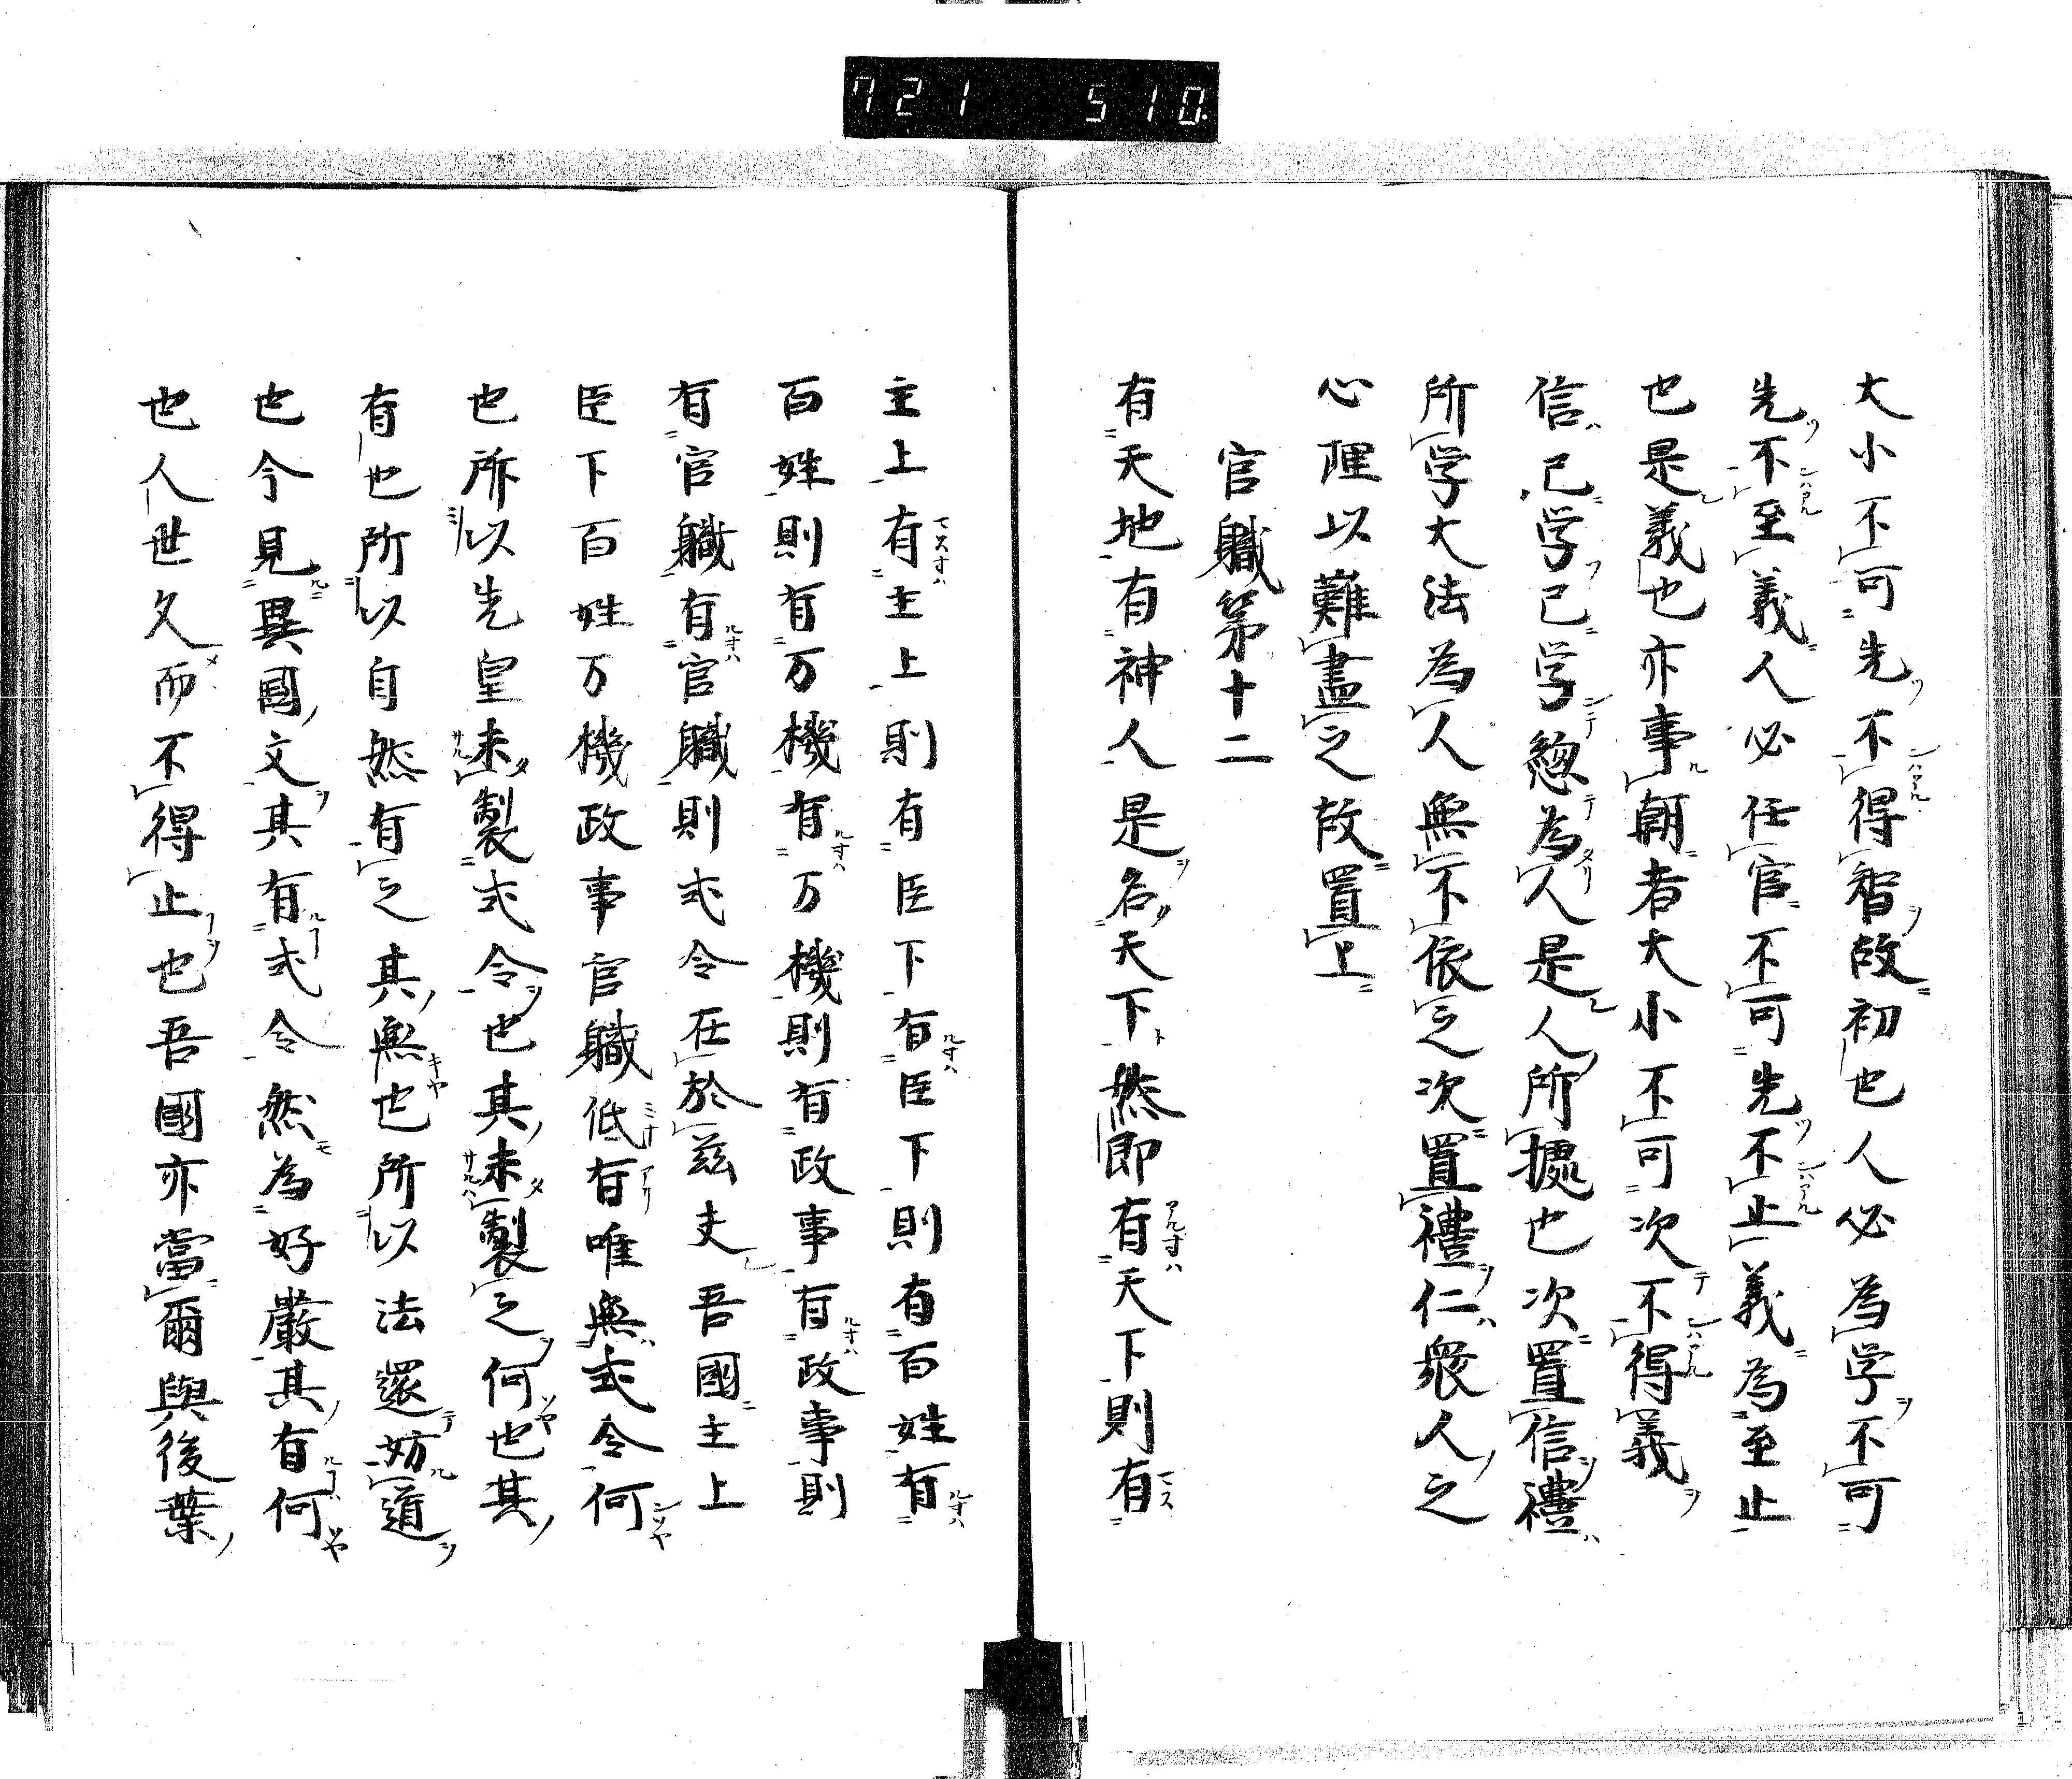 721 510
大小不可先不得智故初也人必為学不可
先不至義人必任官不可先不止義為至止
也是義也亦事朝者大小不可次不得義
信己学己学 為人是人所據也次置信禮
所学大法為人無不依之次置禮仁衆人之
心理以難盡之故置上
官職第十二
有天地有神人是名天下然即有天下則有
主上有主上則有臣下有臣下則有百姓有
百姓則有万機有万機則有政事有政事則
有官職有官職則式令在於茲夫吾國主上
臣下百姓万機政事官職低有唯無式令何
也所以先皇未製式令也其未製之何也其
有也所以自然有之其無也所以法還妨道
也今見異國文其有式令然為好嚴其有何
也人世久而不得止也吾國亦當爾與後葉